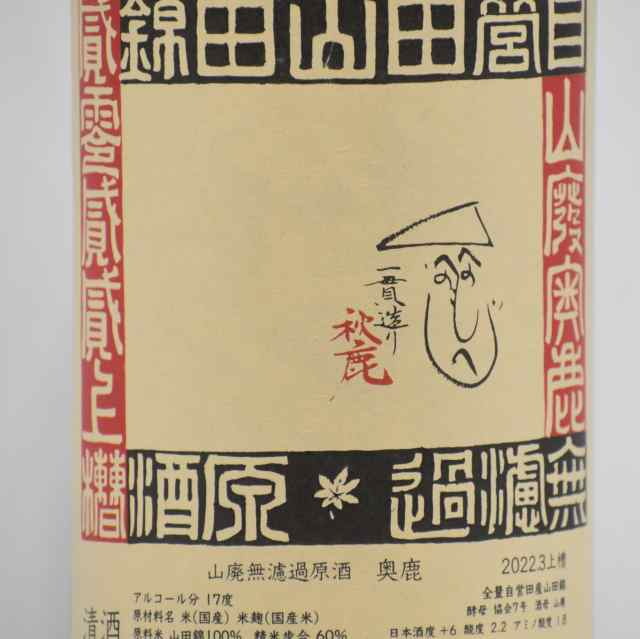 自営田山田錦
山廢奥鹿
無濾過原酒
貳零貳貳上槽
一貫造り
秋鹿
山廃無濾過原酒 奥鹿
2022.3上槽
清酒
アルコール分 17度
原材料名 米(国産) 米麹(国産米)
原料米 山田錦100% 精米歩合 60%
全量自営田産山田錦
酵母 協会7号 酒母 山廃
日本酒度 +6 酸度 2.2 アミノ酸度